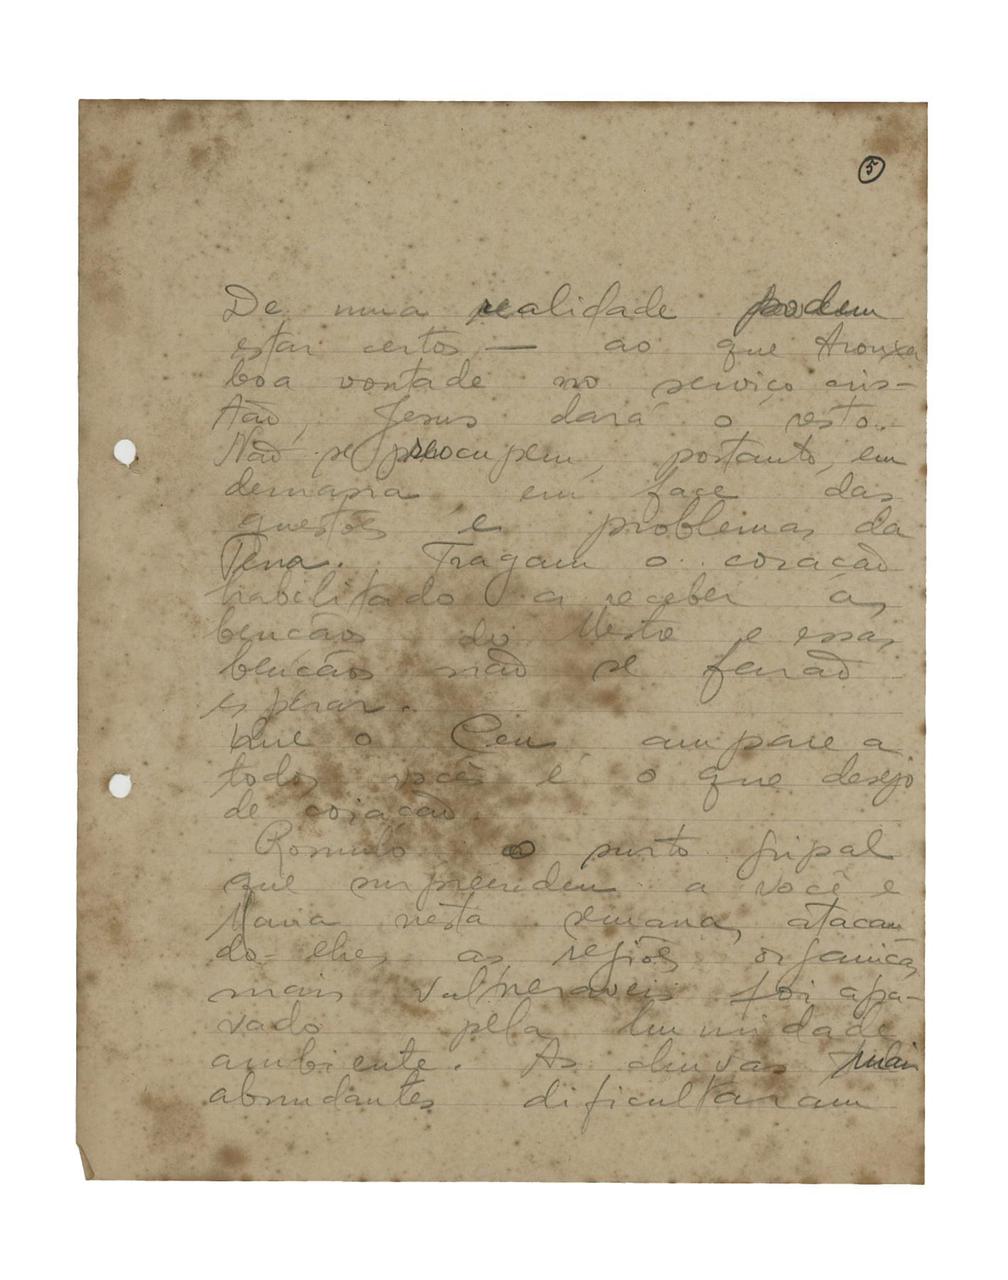 5
De uma realidade podem
estar certos — ao que trouxer
boa vontade no serviço cris-
tão, Jesus dará o resto.
Não se preocupem, portanto, em
demasia em face das
questões e problemas da
Terra. Tragam o coração
habilitado a receber as
bençãos do Mestre e essas
bençãos não se farão
esperar.
Que o Ceu ampare a
todos vocês é o que desejo
de coração.
Romulo o surto gripal
que surpreendeu a você e
Maria nesta semana, atacan
do-lhes as regiões organicas
mais vulneraveis foi
vado pela humidade
ambiente. As chuvas mais
abundantes dificultaram